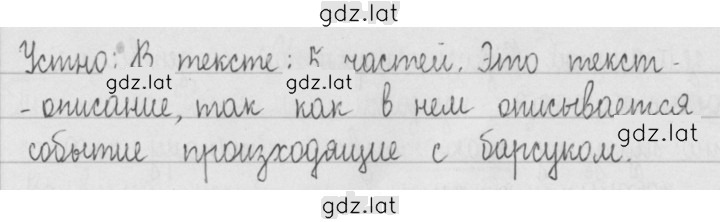 gdz.lat
Устно: В тексте: 5 частей. Это текст-
gdz.lat
-описание, так как в нем описывается
gdz.lat
событие произходящие с барсуком.
gdz.lat